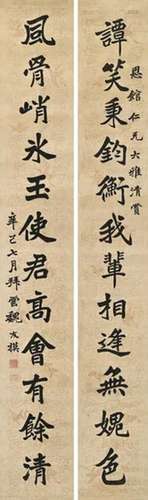 譚笑秉鈞衡我輩相逢無媿色
恩錧仁兄大雅清賞
風骨峭冰玉使君高會有餘清
辛巳七月拜